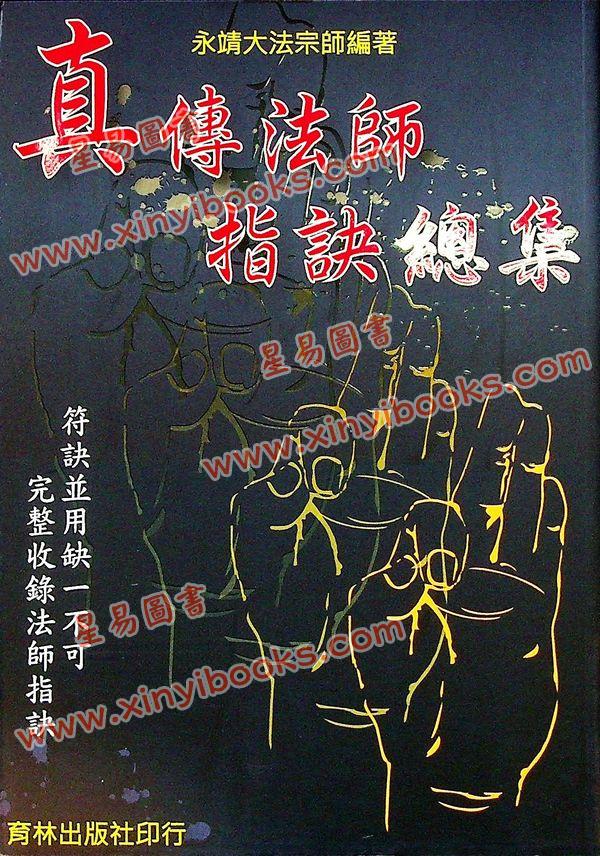 永靖大法宗師編著
真傳法師
指訣總集
符訣並用缺一不可
完整收錄法師指訣
育林出版社印行
星易圖書
www.xinyibooks.com
星易圖書
www.xinyibooks.com
星易圖書
www.xinyibooks.com